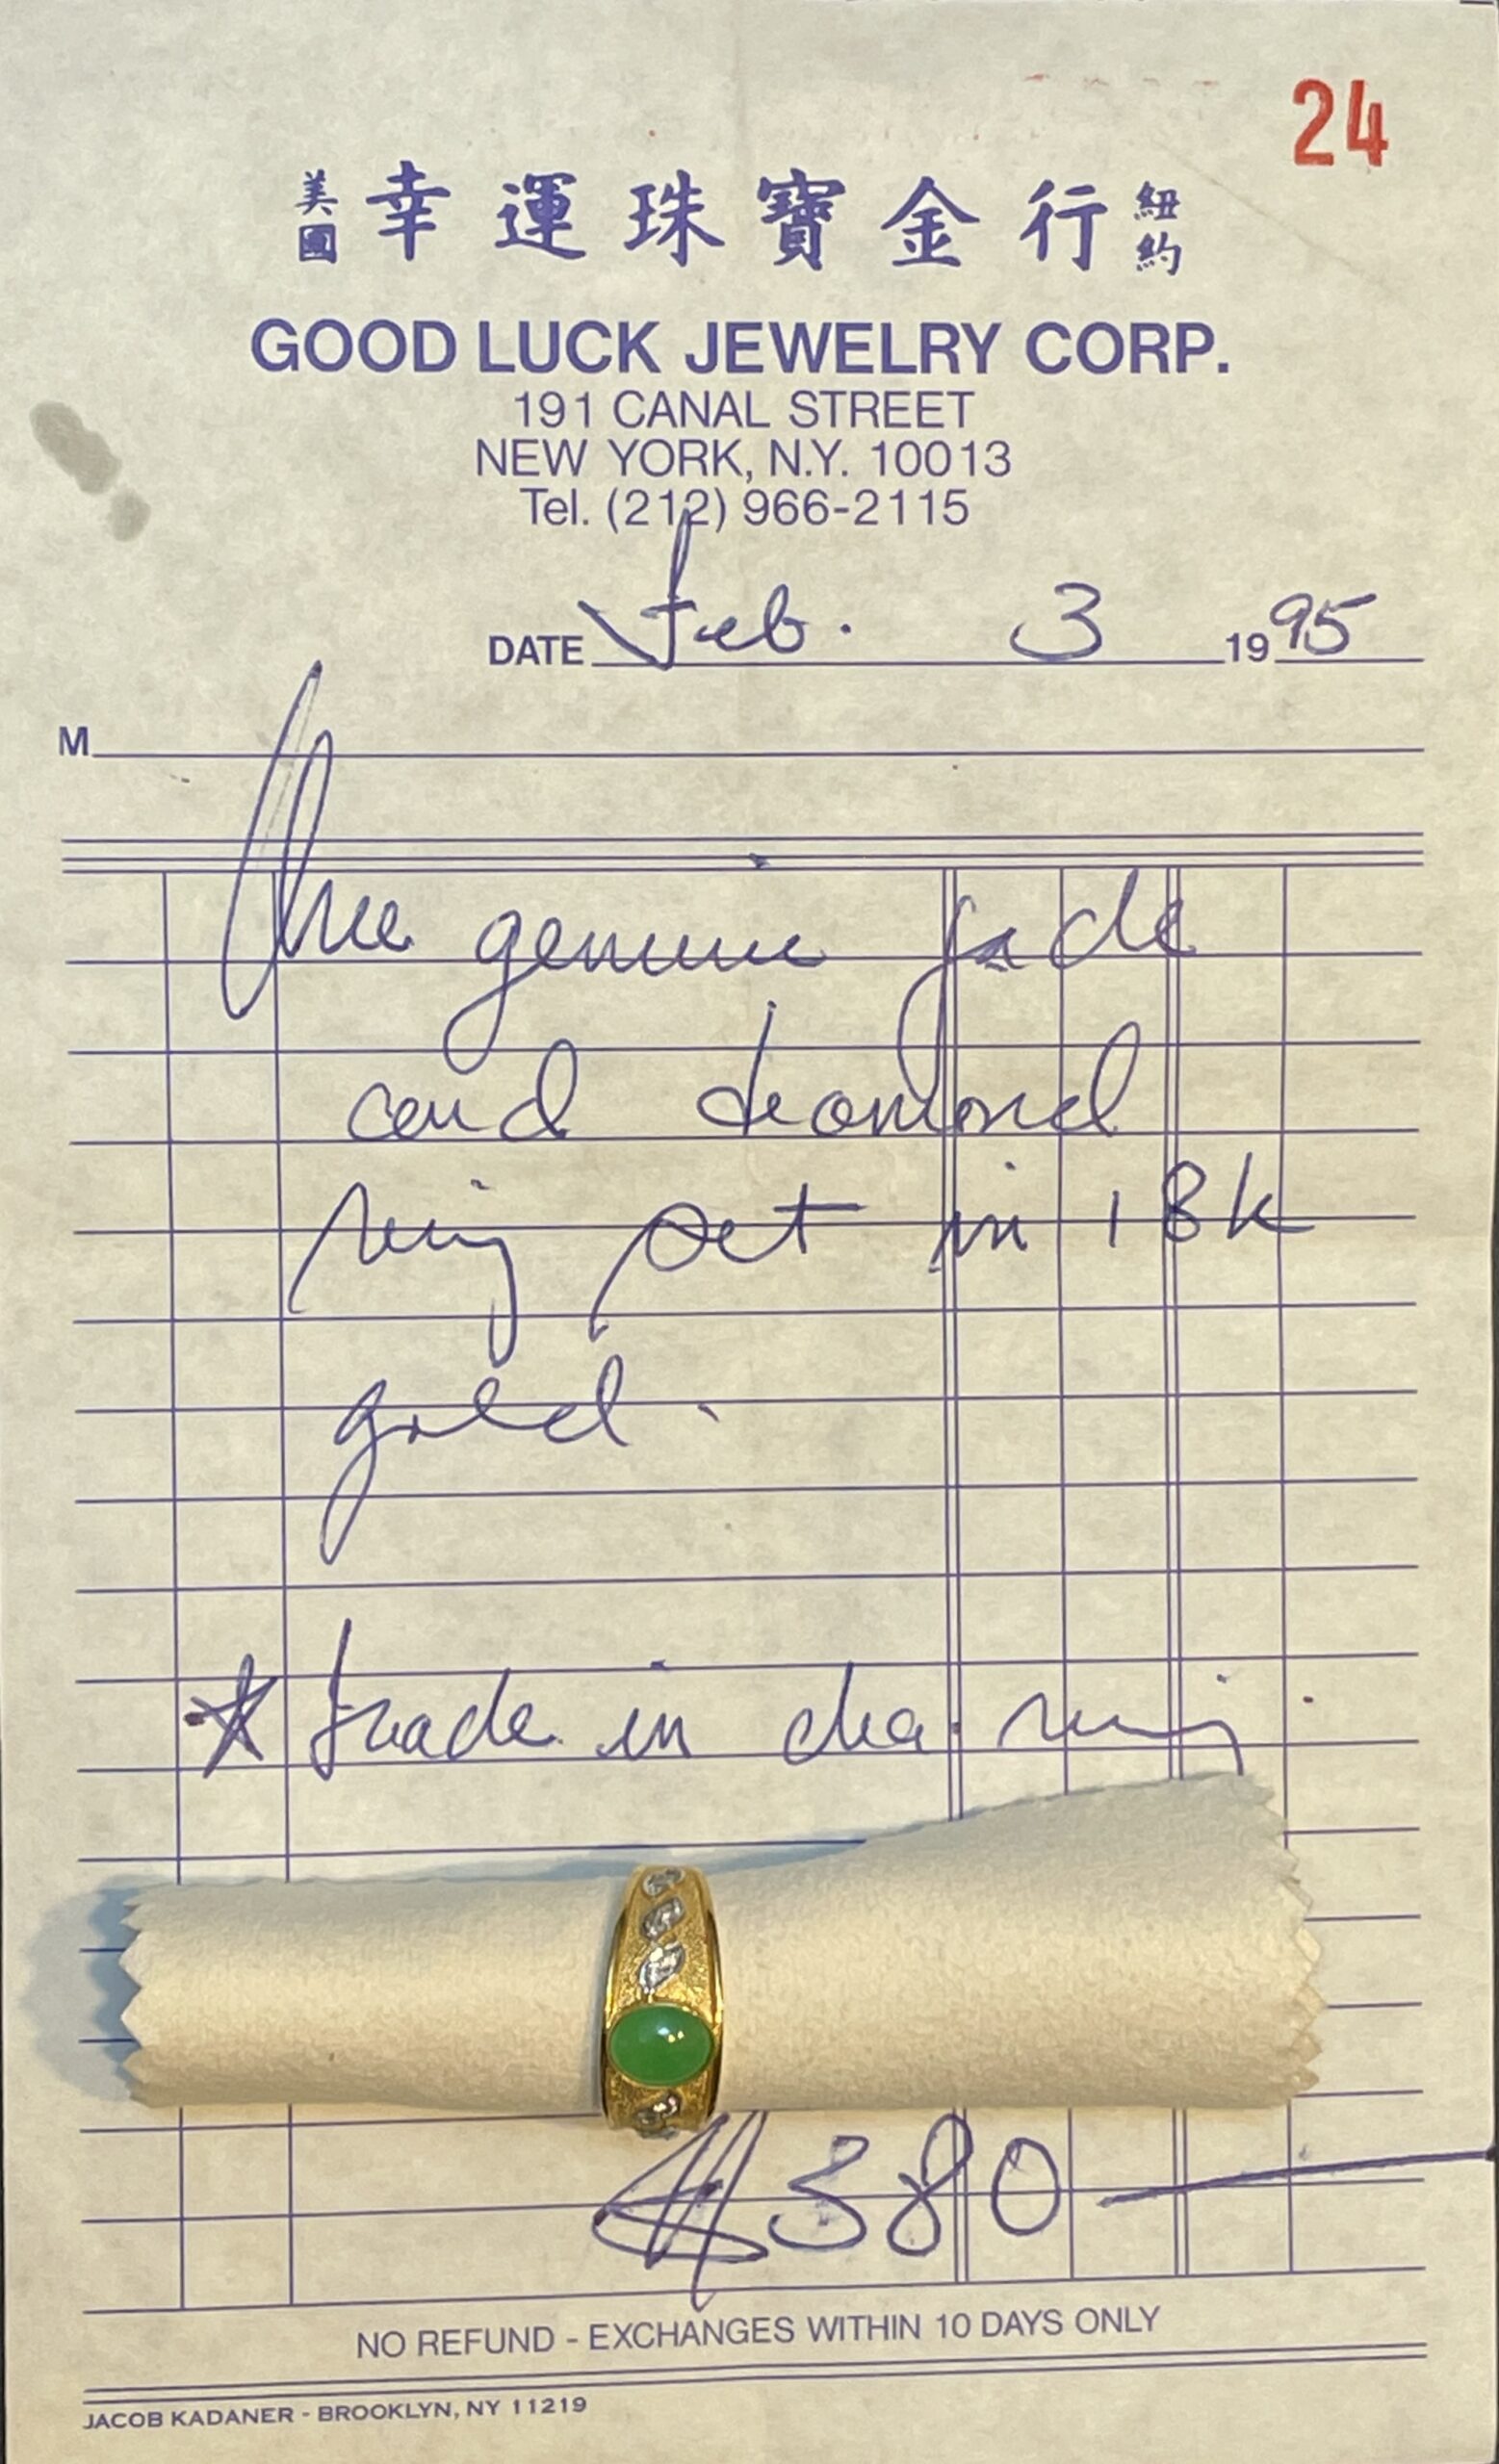 24
美國 幸運珠寶金行 紐約
GOOD LUCK JEWELRY CORP.
191 CANAL STREET
NEW YORK, N.Y. 10013
Tel. (212) 966-2115
DATE Feb. 3 1995
M
One genuine jade
and diamond
ring set in 18k
gold.
* trade in dia. ring
$380—
NO REFUND - EXCHANGES WITHIN 10 DAYS ONLY
JACOB KADANER - BROOKLYN, NY 11219